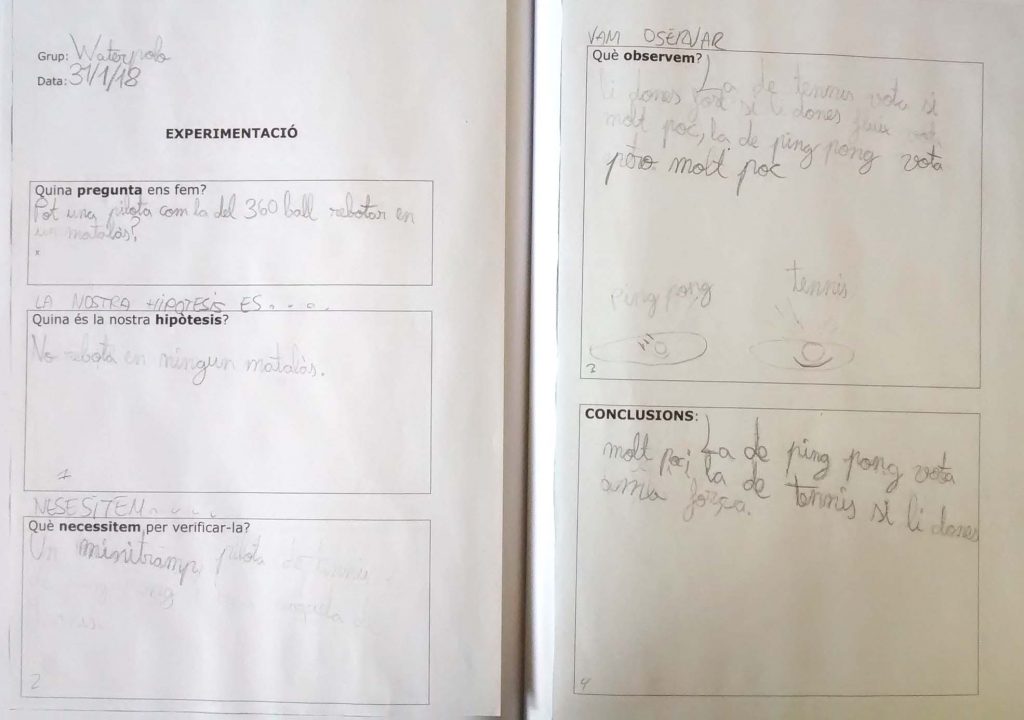 Grup: Waterpolo
Data: 31/1/18
EXPERIMENTACIÓ
Quina pregunta ens fem?
Pot una pilota com la del 360 ball rebotar en
un matalàs?
x
LA NOSTRA HIPOTESIS ES. . . .
Quina és la nostra hipòtesis?
No rebota en ningun matalàs.
1
NESESITEM. . . .
Què necessitem per verificar-la?
Un minitramp, pilota de tennis
raqueta de
tennis
2
VAM OSERVAR
Què observem?
La de tennis vota si
li dones fort si li dones fluix vota
molt poc, la de ping pong vota
pero molt poc
ping pong
tennis
3
CONCLUSIONS:
La de ping pong vota
molt poc i la de tennis si li dones
amb força.
4